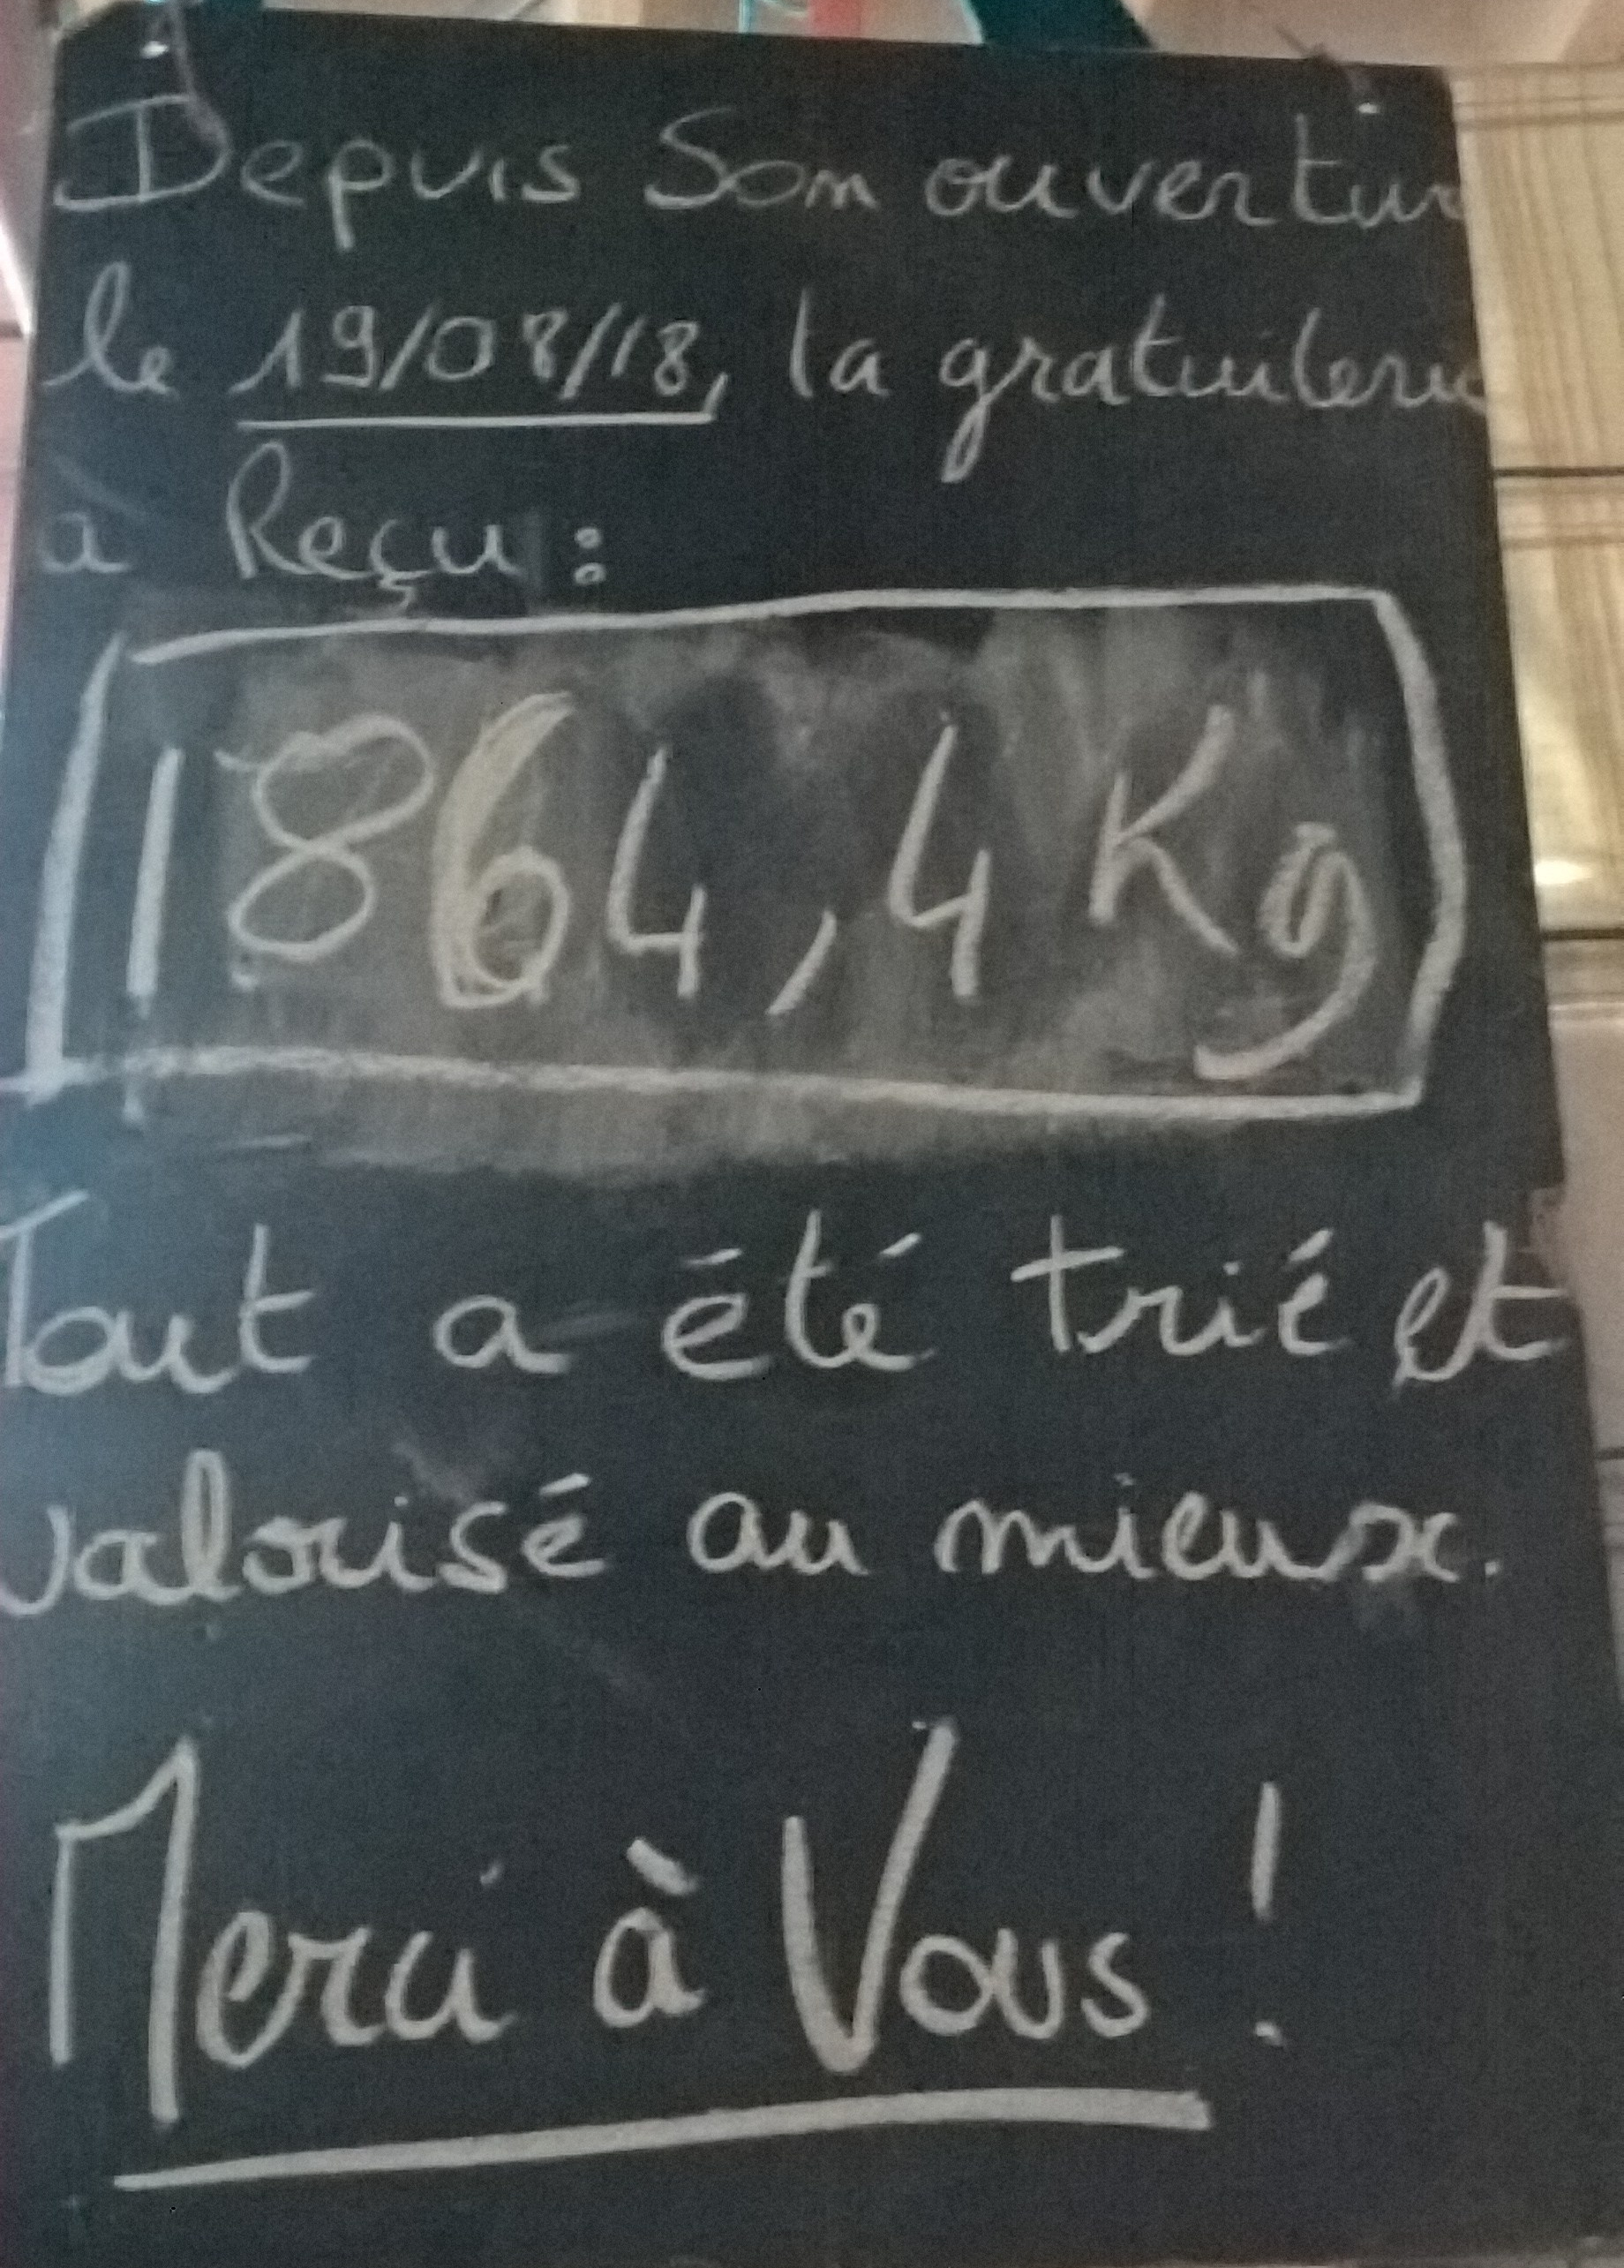 Depuis Son ouvertur
le 19/08/18, la gratuiterie
à Reçu :
1864,4 Kg
Tout a été trié et
valorisé au mieux.
Merci à Vous !